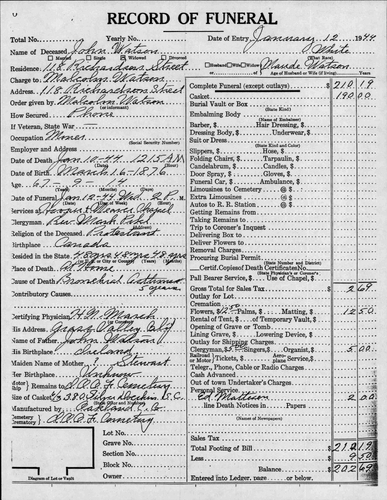 RECORD OF FUNERAL
Total No. Yearly No. Date of Entry January 12 1944
Name of Deceased John Watson White
Married Widowed Divorced (What Race)
Residence 118 Richardson Street Husband Wife Widow Maude Watson
Charge to Malcolm Watson Age of Husband or Wife (if living) Years
Address 118 Richardson Street
Order given by Malcolm Watson
(or informant)
How Secured Phone
If Veteran, State War
Occupation Miner
(Social Security Number)
Employer and Address
Date of Death Jan 10-44 12:15 AM
Date of Birth March 1 6-1876
Age 67 - 9 -
Date of Funeral Jan 12-44 Wed. 2 P.
Services at Hooper & Weaver Chapel
Clergyman Rev
Religion of the Deceased Protestant
Birthplace Canada
Resided in the State 48 yrs 48 yrs 48 yrs
Place of Death At Home
Cause of Death Bronchial Asthma
5 years
Contributory Causes
Certifying Physician H.N. March
His Address Grass Valley Calif
Name of Father John Watson
His Birthplace Ireland
Maiden Name of Mother Stewart
Her Birthplace Unknown
Remains to I.O.O.F. Cemetery
Size of Casket 6/3
Manufactured by Oakland C. Co
I.O.O.F. Cemetery
Lot No.
Grave No.
Section No.
Block No.
Owner
Diagram of Lot or Vault
Complete Funeral (except outlays) $ 210 19
Casket 190 00
Burial Vault or Box
(State Kind)
Embalming Body
(State Name of Embalmer)
Barber, $ Hair Dressing, $
Dressing Body, $ Underwear, $
Suit or Dress
(State Kind and Color)
Slippers, $ Hose, $
Folding Chairs, $ Tarpaulin, $
Candelabrum, $ Candles, $
Door Spray, $ Gloves, $
Funeral Car, $ Ambulance, $
Limousines to Cemetery @ $
Extra Limousines @ $
Autos to R. R. Station @ $
Getting Remains from
Taking Remains to
Trip to Coroner's Inquest
Delivering Box to
Deliver Flowers to
Removal Charges
Procuring Burial Permit
(State Number and District)
Certif. Copies of Death Certificates No.
(State Physician's or Coroner's)
Pall Bearer Service, $ Use of Chapel, $
Gross Total for Sales Tax $ 2 69
Outlay for Lot
Cremation
Flowers, $ Palms, $ Matting, $ 12 50
Rental of Tent, $ of Temporary Vault, $
Opening of Grave or Tomb
Lining Grave, $ Lowering Device, $
Outlay for Shipping Charges
Clergyman, $ Singers, $ Organist, $ 5 00
Railroad or Motor Tickets, $ Aero Service, $
Telegr., Phone, Cable or Radio Charges
Cash Advanced
Out of town Undertaker's Charges
Personal Service
Ed Matteson 2 00
line Death Notices in Papers
Sales Tax
Total Footing of Bill $ 210 19
Less 9 50
Balance 202 69
Entered into Ledger, page or below.